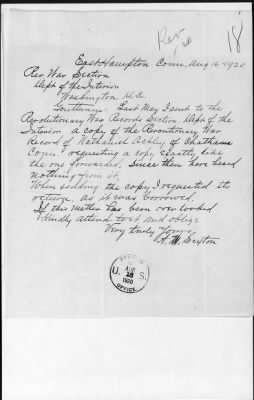 Rev
/20
18
East Hampton Conn, Aug 16 1920
Rev War Section
Dept of the Interior
Washington D.C.
Gentlemen: Last May I sent to the
Revolutionary War Records Section Dept of the
Interior, a copy of the Revolutionary War
Record of Nathaniel Ackley of Chatham
Conn. requesting a copy exactly like
the one forwarded. Since then have heard
nothing from it.
When sending the copy I requested its
return, as it was borrowed.
If this matter has been over looked
kindly attend to it and oblige
Very truly Yours,
H. W. Sexton
U. S.
AUG
18
1920
OFFICE